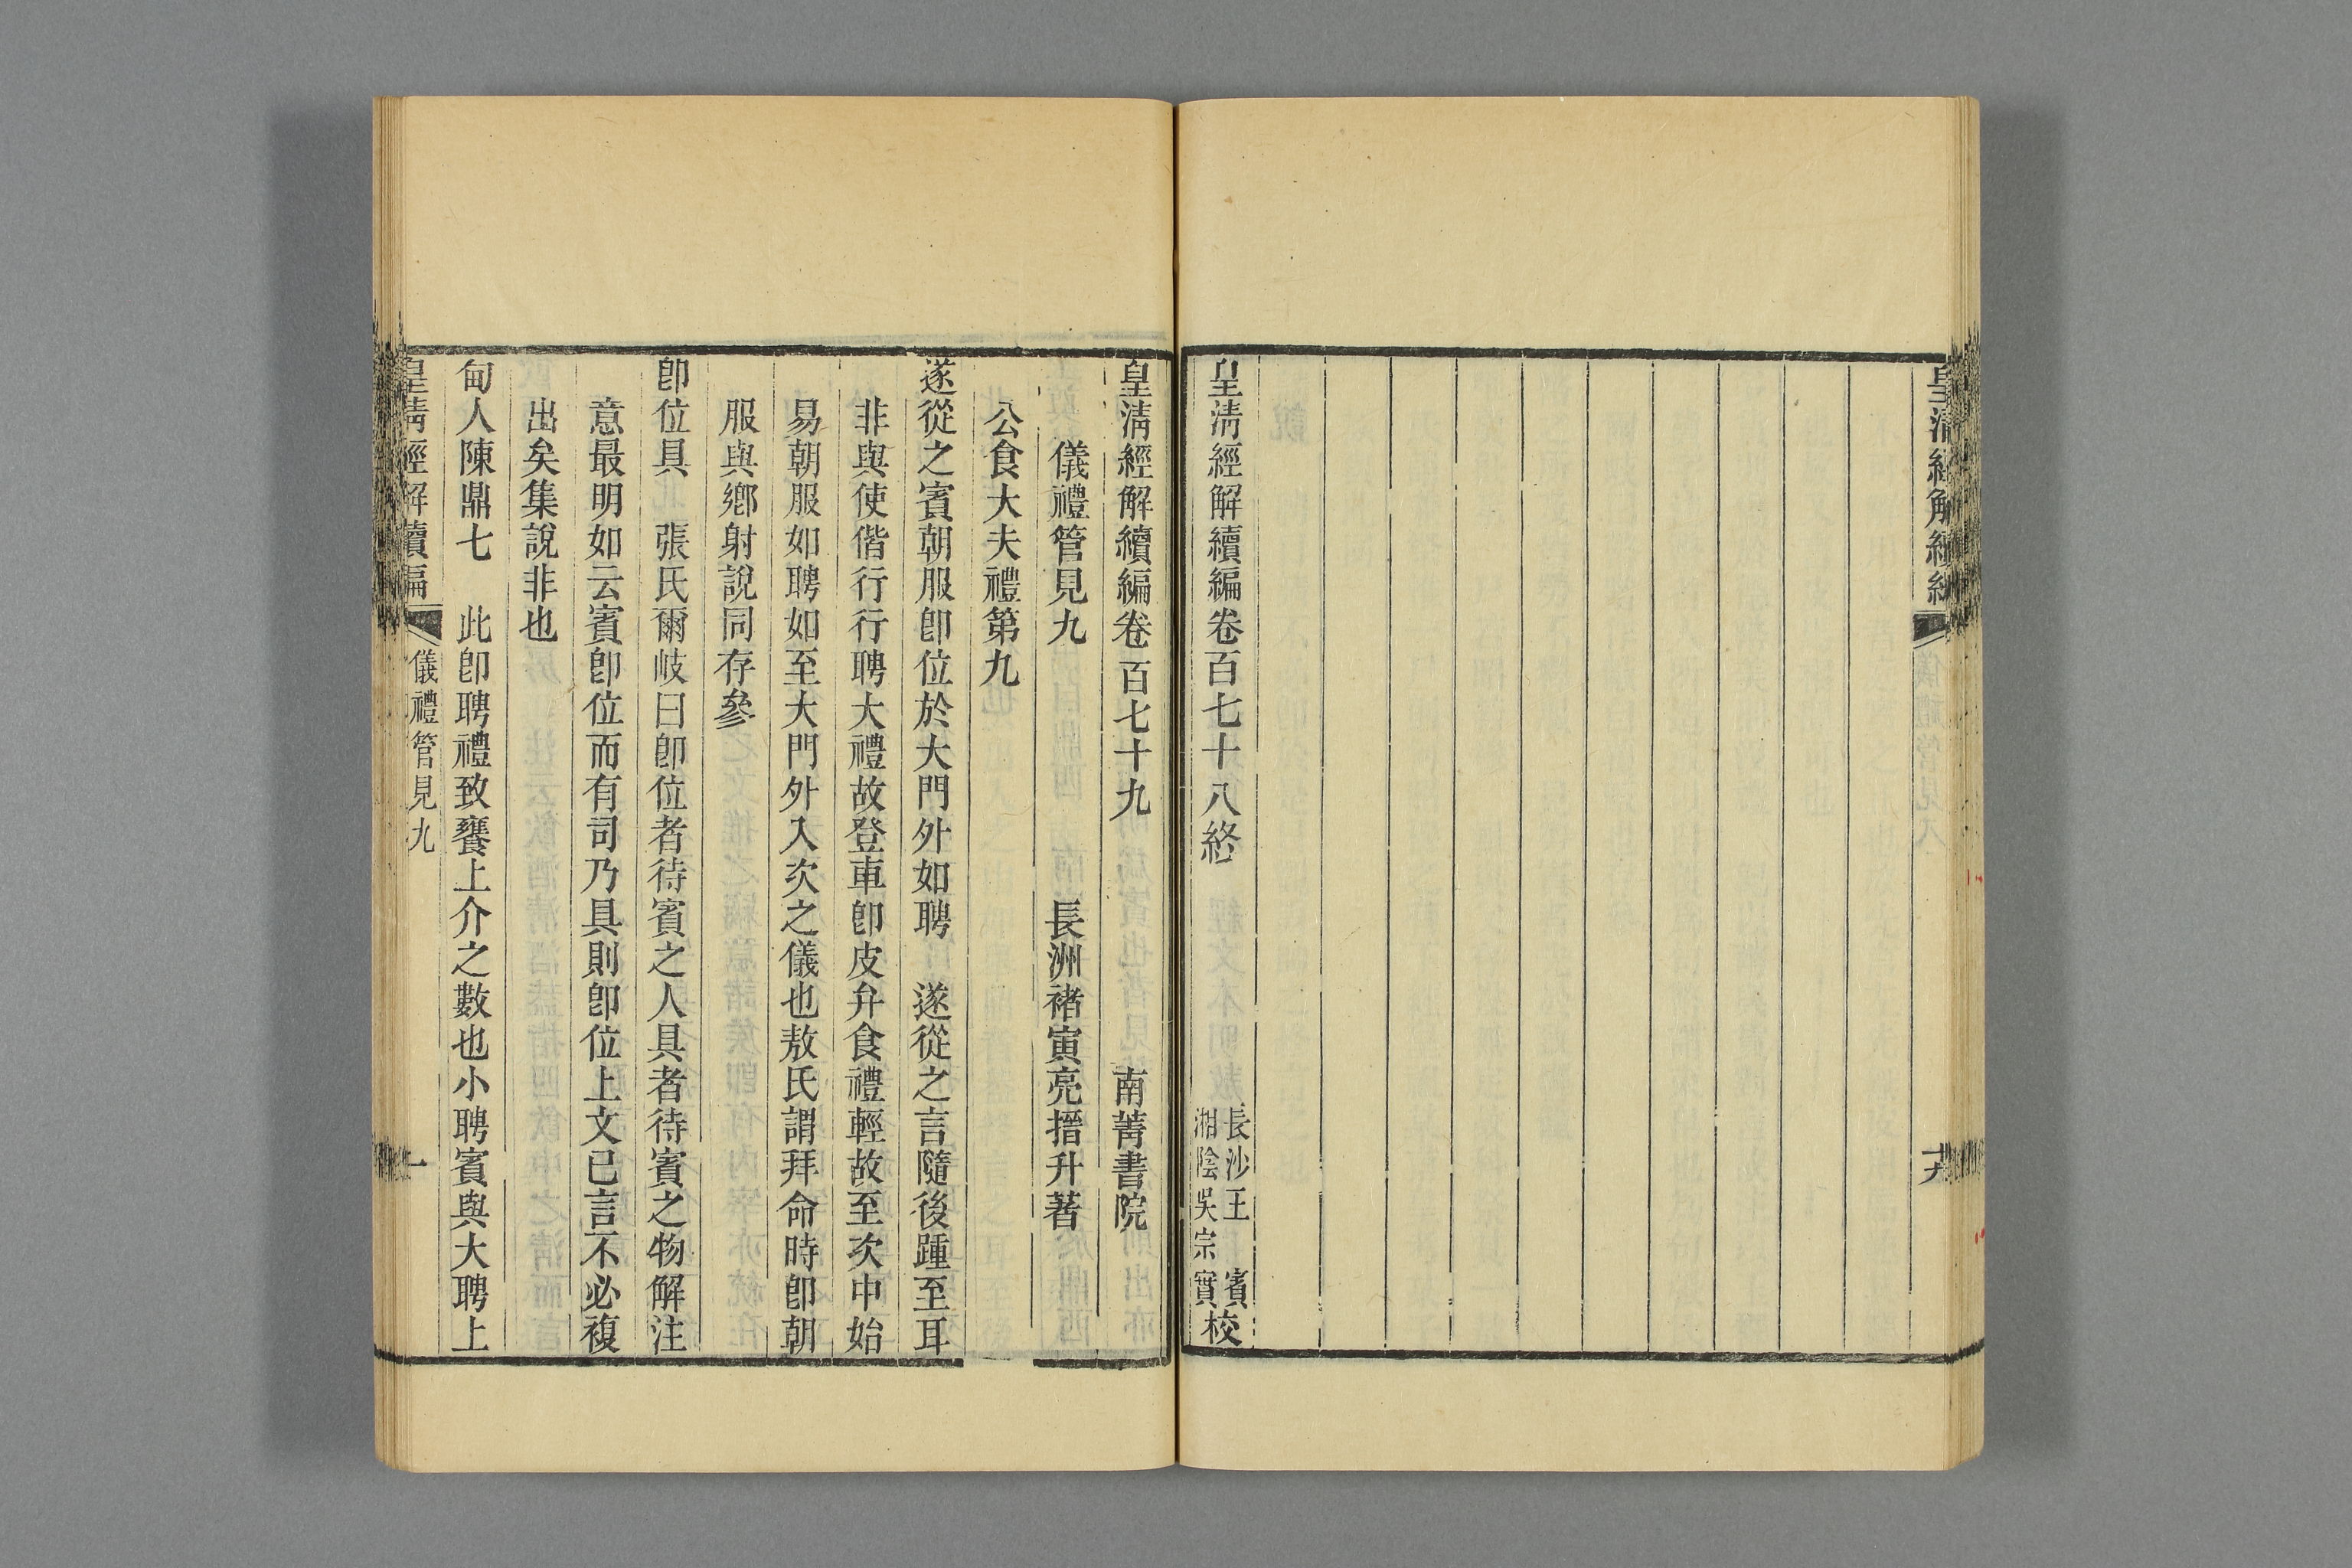 皇清經解續編
皇清經解續編卷百七十八終
長沙王賓
湘陰吳宗實
校
皇清經解續編卷百七十九
南菁書院
儀禮管見九
長洲褚寅亮搢升著
公食大夫禮第九
遂從之賓朝服卽位於大門外如聘　遂從之言隨後踵至耳
非與使偕行行聘大禮故登車卽皮弁食禮輕故至次中始
易朝服如聘如至大門外入次之儀也敖氏謂拜命時卽朝
服與鄉射說同存參
卽位具　張氏爾岐曰卽位者待賓之人具者待賓之物解注
意最明如云賓卽位而有司乃具則卽位上文已言不必複
出矣集說非也
甸人陳鼎七　此卽聘禮致饔上介之數也小聘賓與大聘上
皇清經解續編
儀禮管見九
一